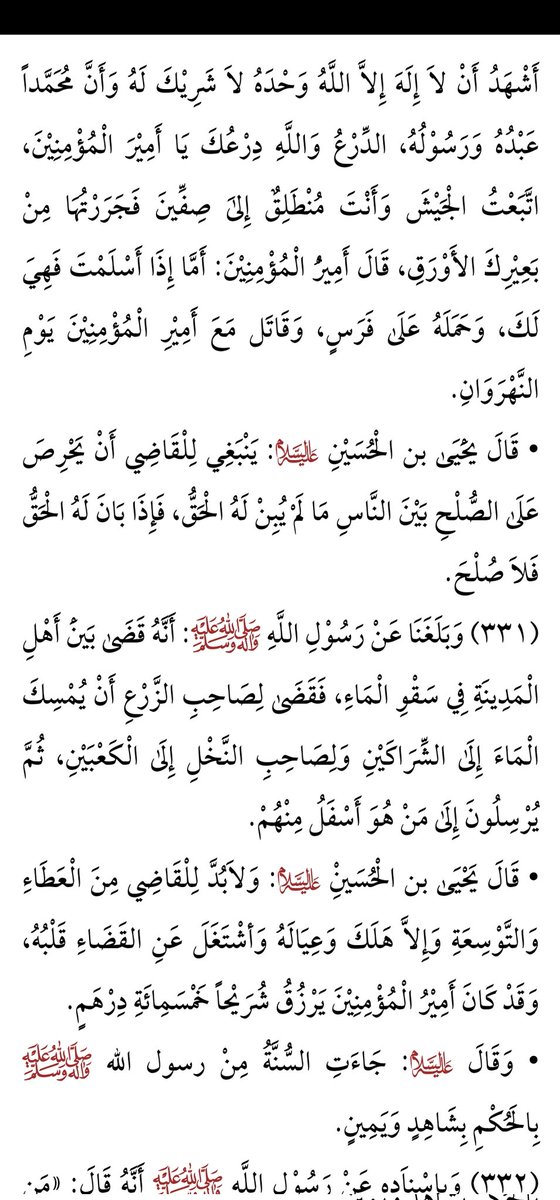 أَشْهَدُ أَنْ لاَ إِلَهَ إِلاَّ اللَّهُ وَحْدَهُ لاَ شَرِيْكَ لَهُ وَأَنَّ مُحَمَّداً
عَبْدُهُ وَرَسُوْلُهُ، الدِّرْعُ وَاللَّهِ دِرْعُكَ يَا أَمِيْرَ الْمُؤْمِنِيْنَ،
اتَّبَعْتُ الْجَيْشَ وَأَنْتَ مُنْطَلِقٌ إِلىَ صِفِّينَ فَجَرَرْتُهَا مِنْ
بَعِيْرِكَ الأَوْرَقِ، قَالَ أَمِيرُ الْمُؤْمِنِيْنَ: أَمَّا إِذَا أَسْلَمْتَ فَهِيَ
لَكَ، وَحَمَلَهُ عَلَى فَرَسٍ، وَقَاتَل مَعَ أَمِيْرِ الْمُؤْمِنِيْنَ يَوْمِ
النَّهْرَوَانِ.
• قَالَ يَحْيَى بن الْحُسَيْنِ عَلَيْهِ السَّلَامُ: يَنْبَغِي لِلْقَاضِي أَنْ يَحْرِصَ
عَلَى الصُّلْحِ بَيْنَ النَّاسِ مَا لَمْ يُبِنْ لَهُ الْحَقُّ، فَإِذَا بَانَ لَهُ الْحَقُّ
فَلاَ صُلْحَ.
(٣٣١) وَبَلَغَنَا عَنْ رَسُوْلِ اللَّهِ صَلَّى اللَّهُ عَلَيْهِ وَآلِهِ وَسَلَّمَ: أَنَّهُ قَضَى بَيْنَ أَهْلِ
الْمَدِينَةِ فِي سَقْوِ الْمَاءِ، فَقَضَى لِصَاحِبِ الزَّرْعِ أَنْ يُمْسِكَ
الْمَاءَ إِلَى الشِّرَاكَيْنِ وَلِصَاحِبِ النَّخْلِ إِلَى الْكَعْبَيْنِ، ثُمَّ
يُرْسِلُونَ إِلَى مَنْ هُوَ أَسْفَلُ مِنْهُمْ.
• قَالَ يَحْيَى بن الْحُسَيْنِ عَلَيْهِ السَّلَامُ: وَلاَبُدَّ لِلْقَاضِي مِنَ الْعَطَاءِ
وَالتَّوْسِعَةِ وَإِلاَّ هَلَكَ وَعِيَالَهُ وَأشْتَغَلَ عَنِ القَضَاءِ قَلْبُهُ،
وَقَدْ كَانَ أَمِيْرُ الْمُؤْمِنِيْنَ يَرْزُقُ شُرَيْحاً خَمْسَمِائَةِ دِرْهَمٍ.
• وَقَالَ عَلَيْهِ السَّلَامُ: جَاءَتِ السُّنَّةُ مِنْ رسول الله صَلَّى اللَّهُ عَلَيْهِ وَآلِهِ وَسَلَّمَ
بِالحُكْمِ بِشَاهِدٍ وَيَمِينٍ.
(٣٣٢) وَبِإِسْنَادِهِ عَنْ رَسُوْلِ اللَّهِ صَلَّى اللَّهُ عَلَيْهِ وَآلِهِ وَسَلَّمَ أَنَّهُ قَالَ: «مَن